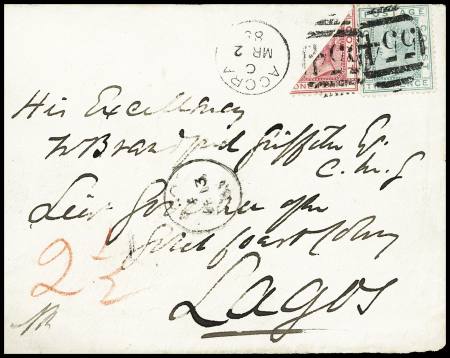 ACCRA
C
MR 2
8
ONE
POSTAGE
554
554
PENCE
His Excellency
W Brandford Griffith Esq
C.M.G
Lieu Governor of the
Gold Coast Colony
Lagos
2 1/2